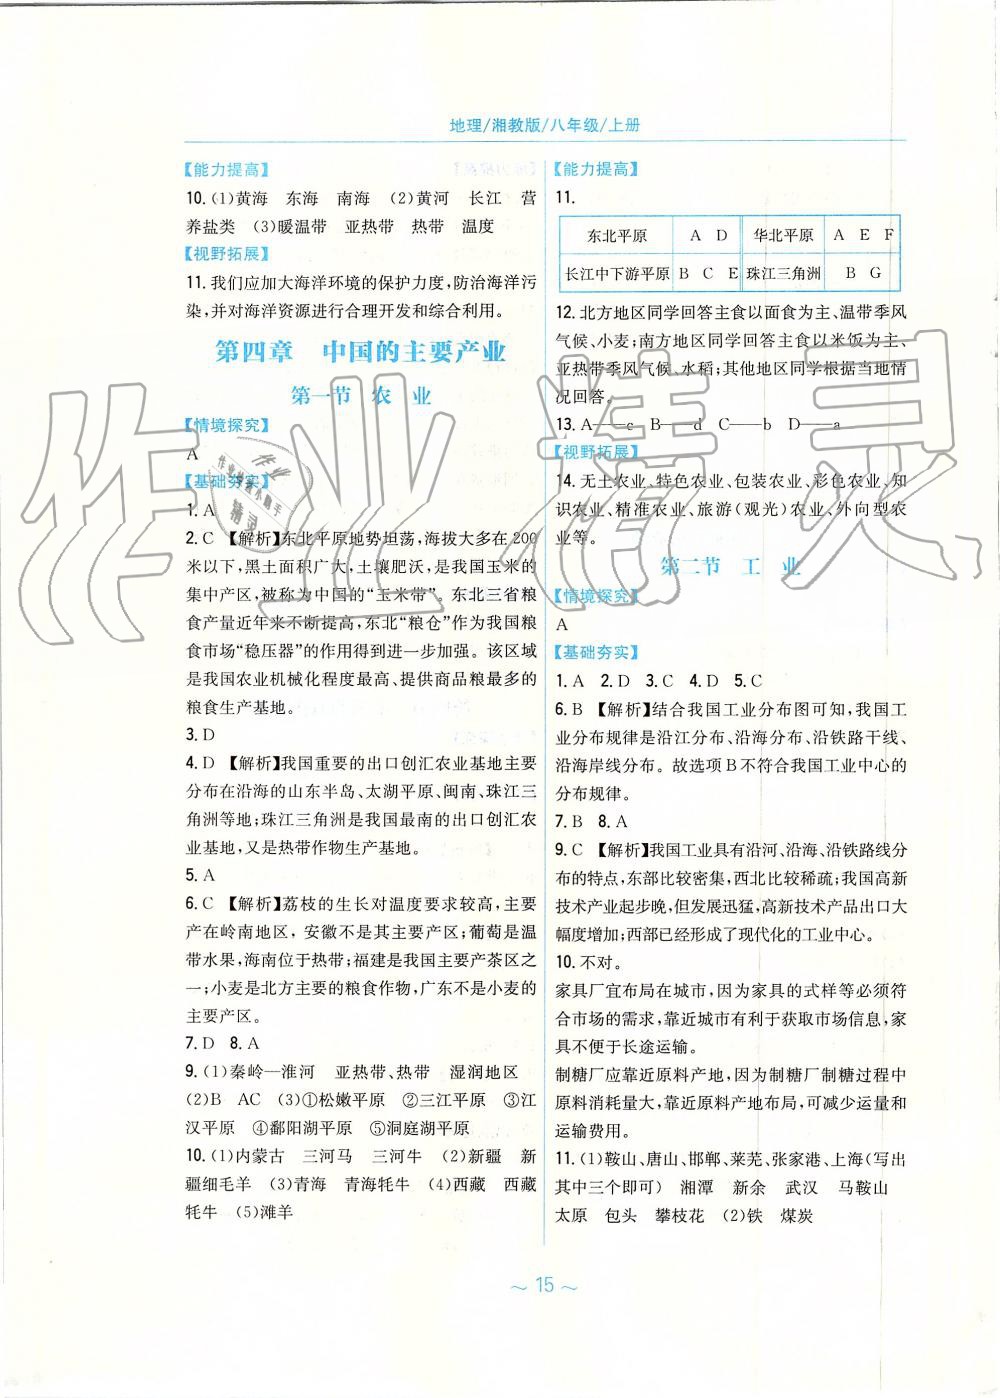 地理/湘教版/八年级/上册
【能力提高】
10. (1)黄海　东海　南海　(2)黄河　长江　营
养盐类　(3)暖温带　亚热带　热带　温度
【视野拓展】
11. 我们应加大海洋环境的保护力度,防治海洋污
染,并对海洋资源进行合理开发和综合利用。
第四章　中国的主要产业
第一节　农　业
【情境探究】
A
【基础夯实】
1. A
2. C 【解析】东北平原地势坦荡,海拔大多在200
米以下,黑土面积广大,土壤肥沃,是我国玉米的
集中产区,被称为中国的“玉米带”。东北三省粮
食产量近年来不断提高,东北“粮仓”作为我国粮
食市场“稳压器”的作用得到进一步加强。该区域
是我国农业机械化程度最高、提供商品粮最多的
粮食生产基地。
3. D
4. D 【解析】我国重要的出口创汇农业基地主要
分布在沿海的山东半岛、太湖平原、闽南、珠江三
角洲等地;珠江三角洲是我国最南的出口创汇农
业基地,又是热带作物生产基地。
5. A
6. C 【解析】荔枝的生长对温度要求较高,主要
产在岭南地区,安徽不是其主要产区;葡萄是温
带水果,海南位于热带;福建是我国主要产茶区之
一;小麦是北方主要的粮食作物,广东不是小麦的
主要产区。
7. D　8. A
9. (1)秦岭—淮河　亚热带、热带　湿润地区
(2)B　AC　(3)①松嫩平原　②三江平原　③江
汉平原　④鄱阳湖平原　⑤洞庭湖平原
10. (1)内蒙古　三河马　三河牛　(2)新疆　新
疆细毛羊　(3)青海　青海牦牛　(4)西藏　西藏
牦牛　(5)滩羊
【能力提高】
11.
东北平原　A　D　华北平原　A　E　F
长江中下游平原　B　C　E　珠江三角洲　B　G
12. 北方地区同学回答主食以面食为主、温带季风
气候、小麦;南方地区同学回答主食以米饭为主、
亚热带季风气候、水稻;其他地区同学根据当地情
况回答。
13. A——c　B——d　C——b　D——a
【视野拓展】
14. 无土农业、特色农业、包装农业、彩色农业、知
识农业、精准农业、旅游(观光)农业、外向型农
业等。
第二节　工　业
【情境探究】
A
【基础夯实】
1. A　2. D　3. C　4. D　5. C
6. B 【解析】结合我国工业分布图可知,我国工
业分布规律是沿江分布、沿海分布、沿铁路干线、
沿海岸线分布。故选项B不符合我国工业中心的
分布规律。
7. B　8. A
9. C 【解析】我国工业具有沿河、沿海、沿铁路线分
布的特点,东部比较密集,西北比较稀疏;我国高新
技术产业起步晚,但发展迅猛,高新技术产品出口大
幅度增加;西部已经形成了现代化的工业中心。
10. 不对。
家具厂宜布局在城市,因为家具的式样等必须符
合市场的需求,靠近城市有利于获取市场信息,家
具不便于长途运输。
制糖厂应靠近原料产地,因为制糖厂制糖过程中
原料消耗量大,靠近原料产地布局,可减少运量和
运输费用。
11. (1)鞍山、唐山、邯郸、莱芜、张家港、上海(写出
其中三个即可)　湘潭　新余　武汉　马鞍山
太原　包头　攀枝花　(2)铁　煤炭
～ 15 ～
作业精灵
作业
作业检查小助手
精灵